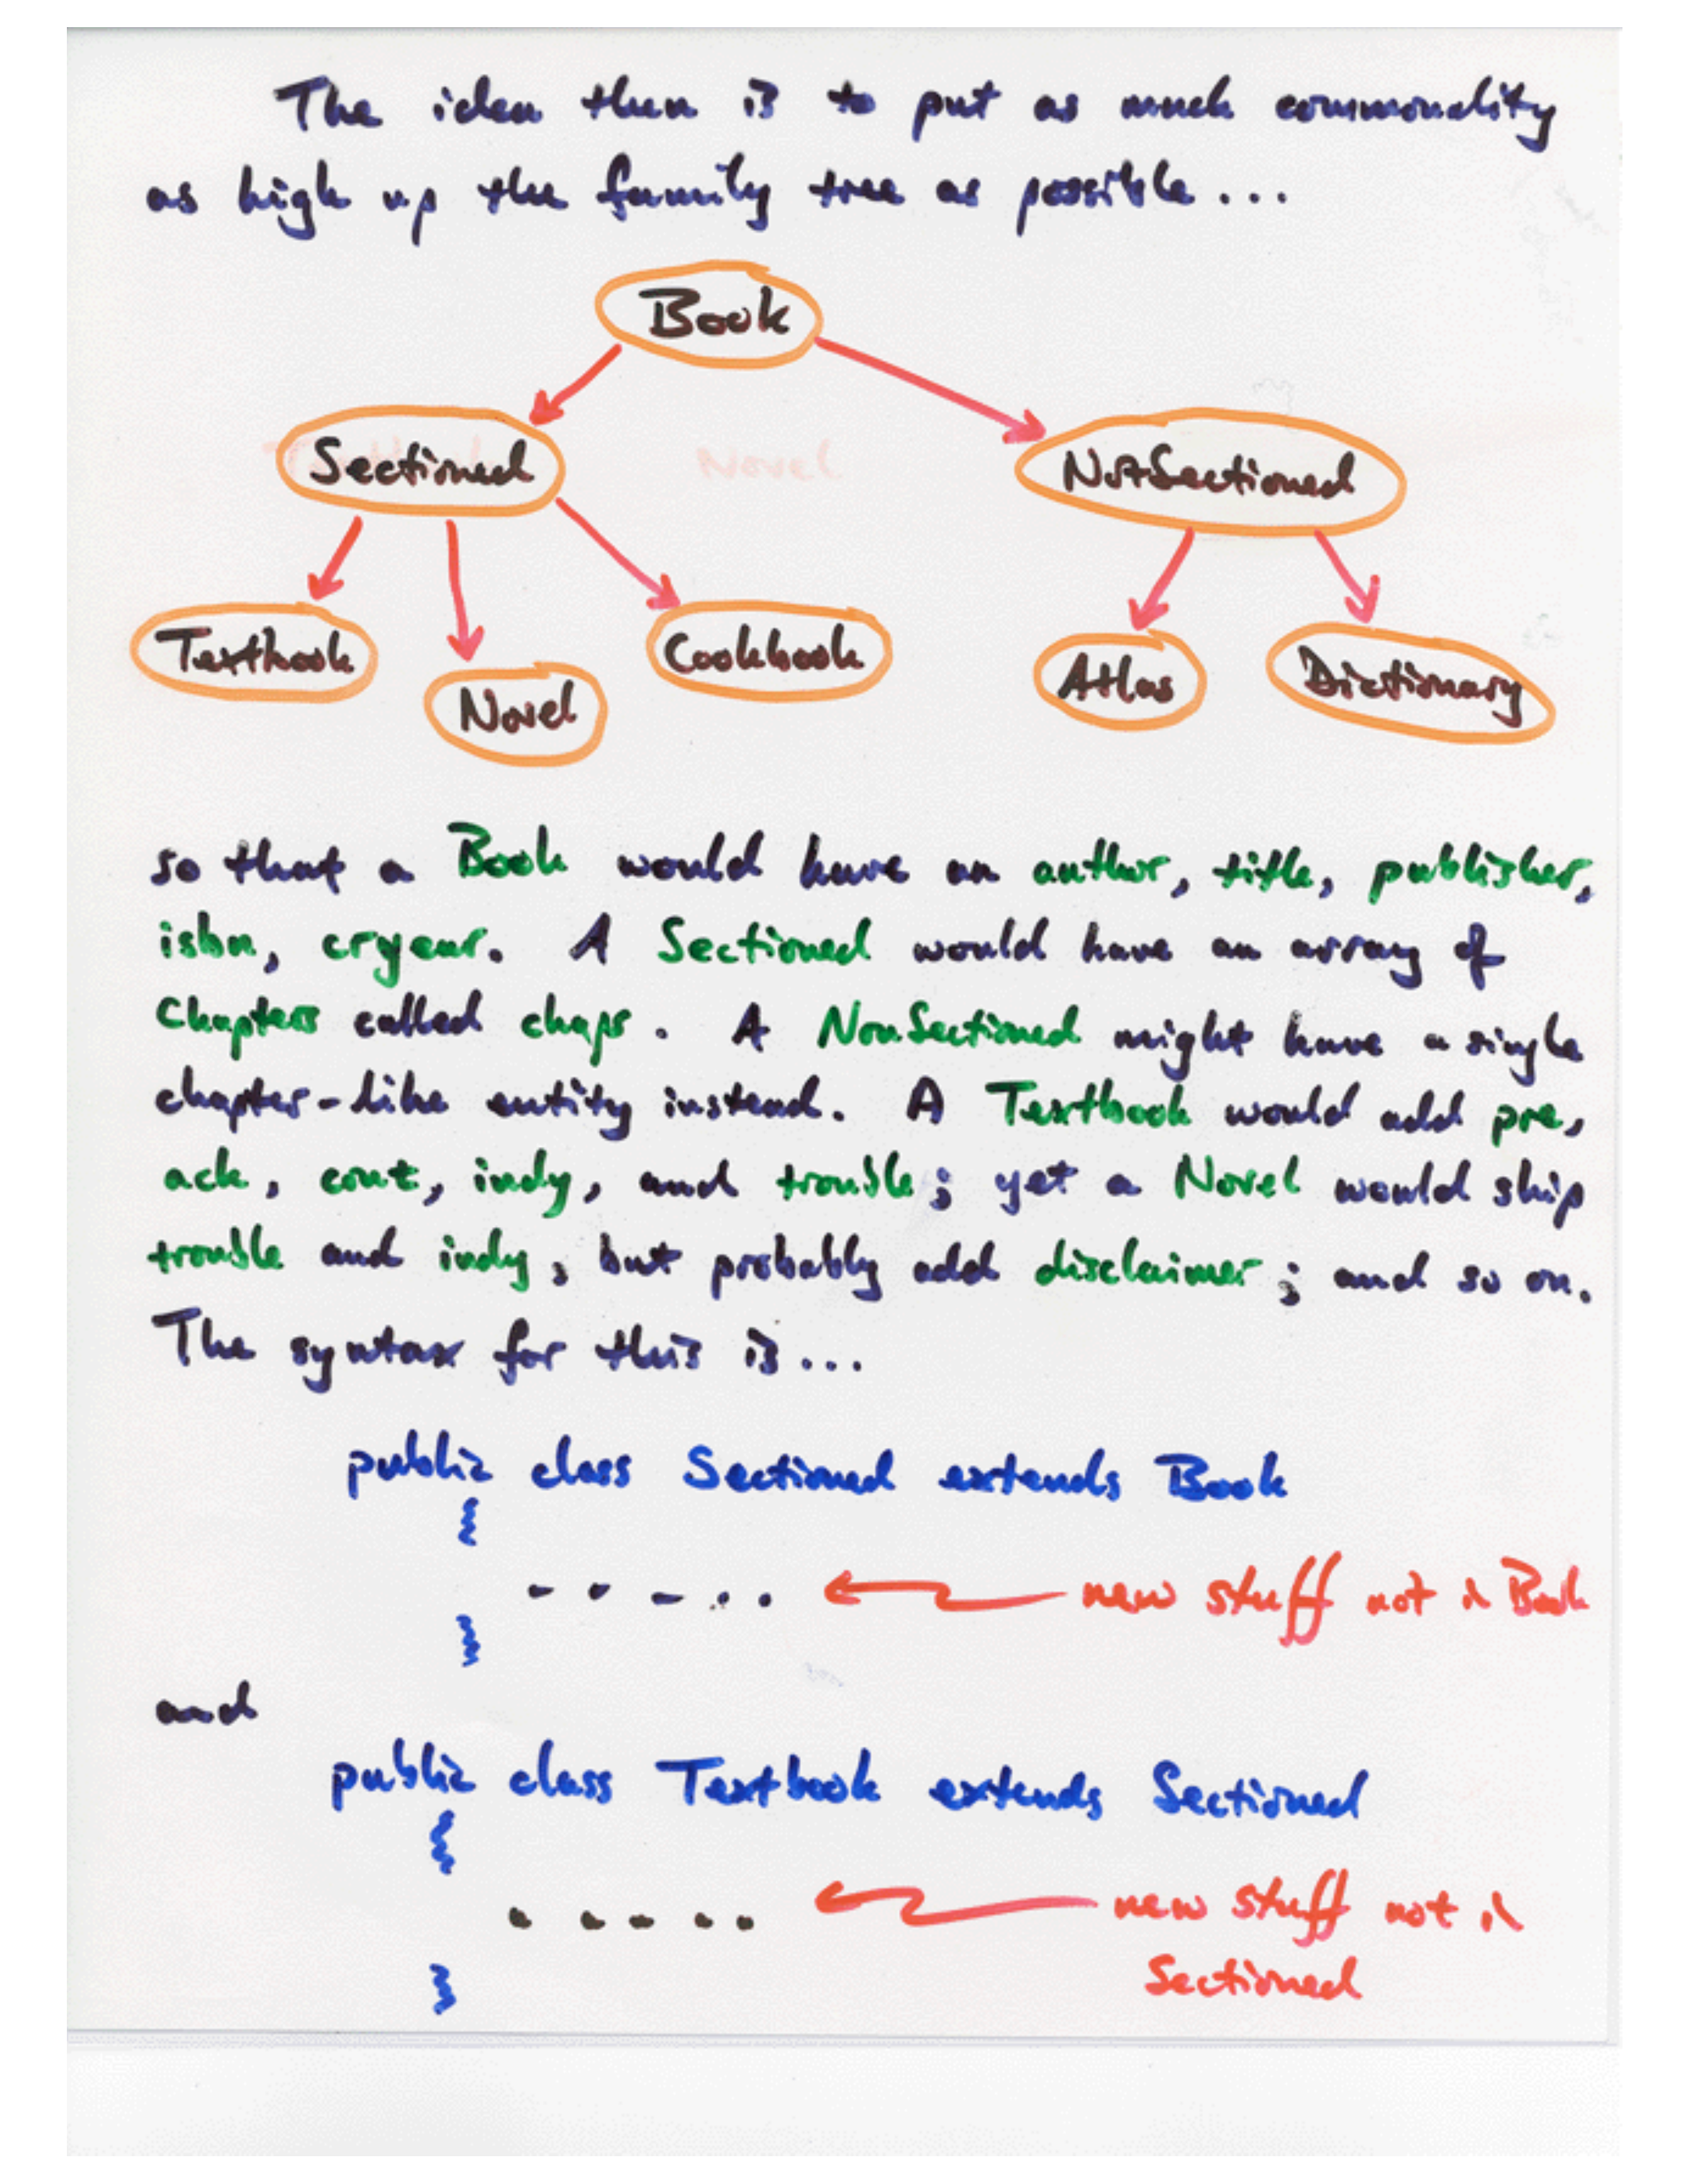 The idea then is to put as much commonality
as high up the family tree as possible...
Book
Sectioned
NotSectioned
Textbook
Novel
Cookbook
Atlas
Dictionary
Novel
so that a Book would have an author, title, publisher,
isbn, cryear. A Sectioned would have an array of
Chapters called chaps. A NonSectioned might have a single
chapter-like entity instead. A Textbook would add pre,
ack, cont, indy, and trouble; yet a Novel would skip
trouble and indy, but probably add disclaimer; and so on.
The syntax for this is...
public class Sectioned extends Book
{
..... new stuff not in Book
}
and
public class Textbook extends Sectioned
{
..... new stuff not in
Sectioned
}